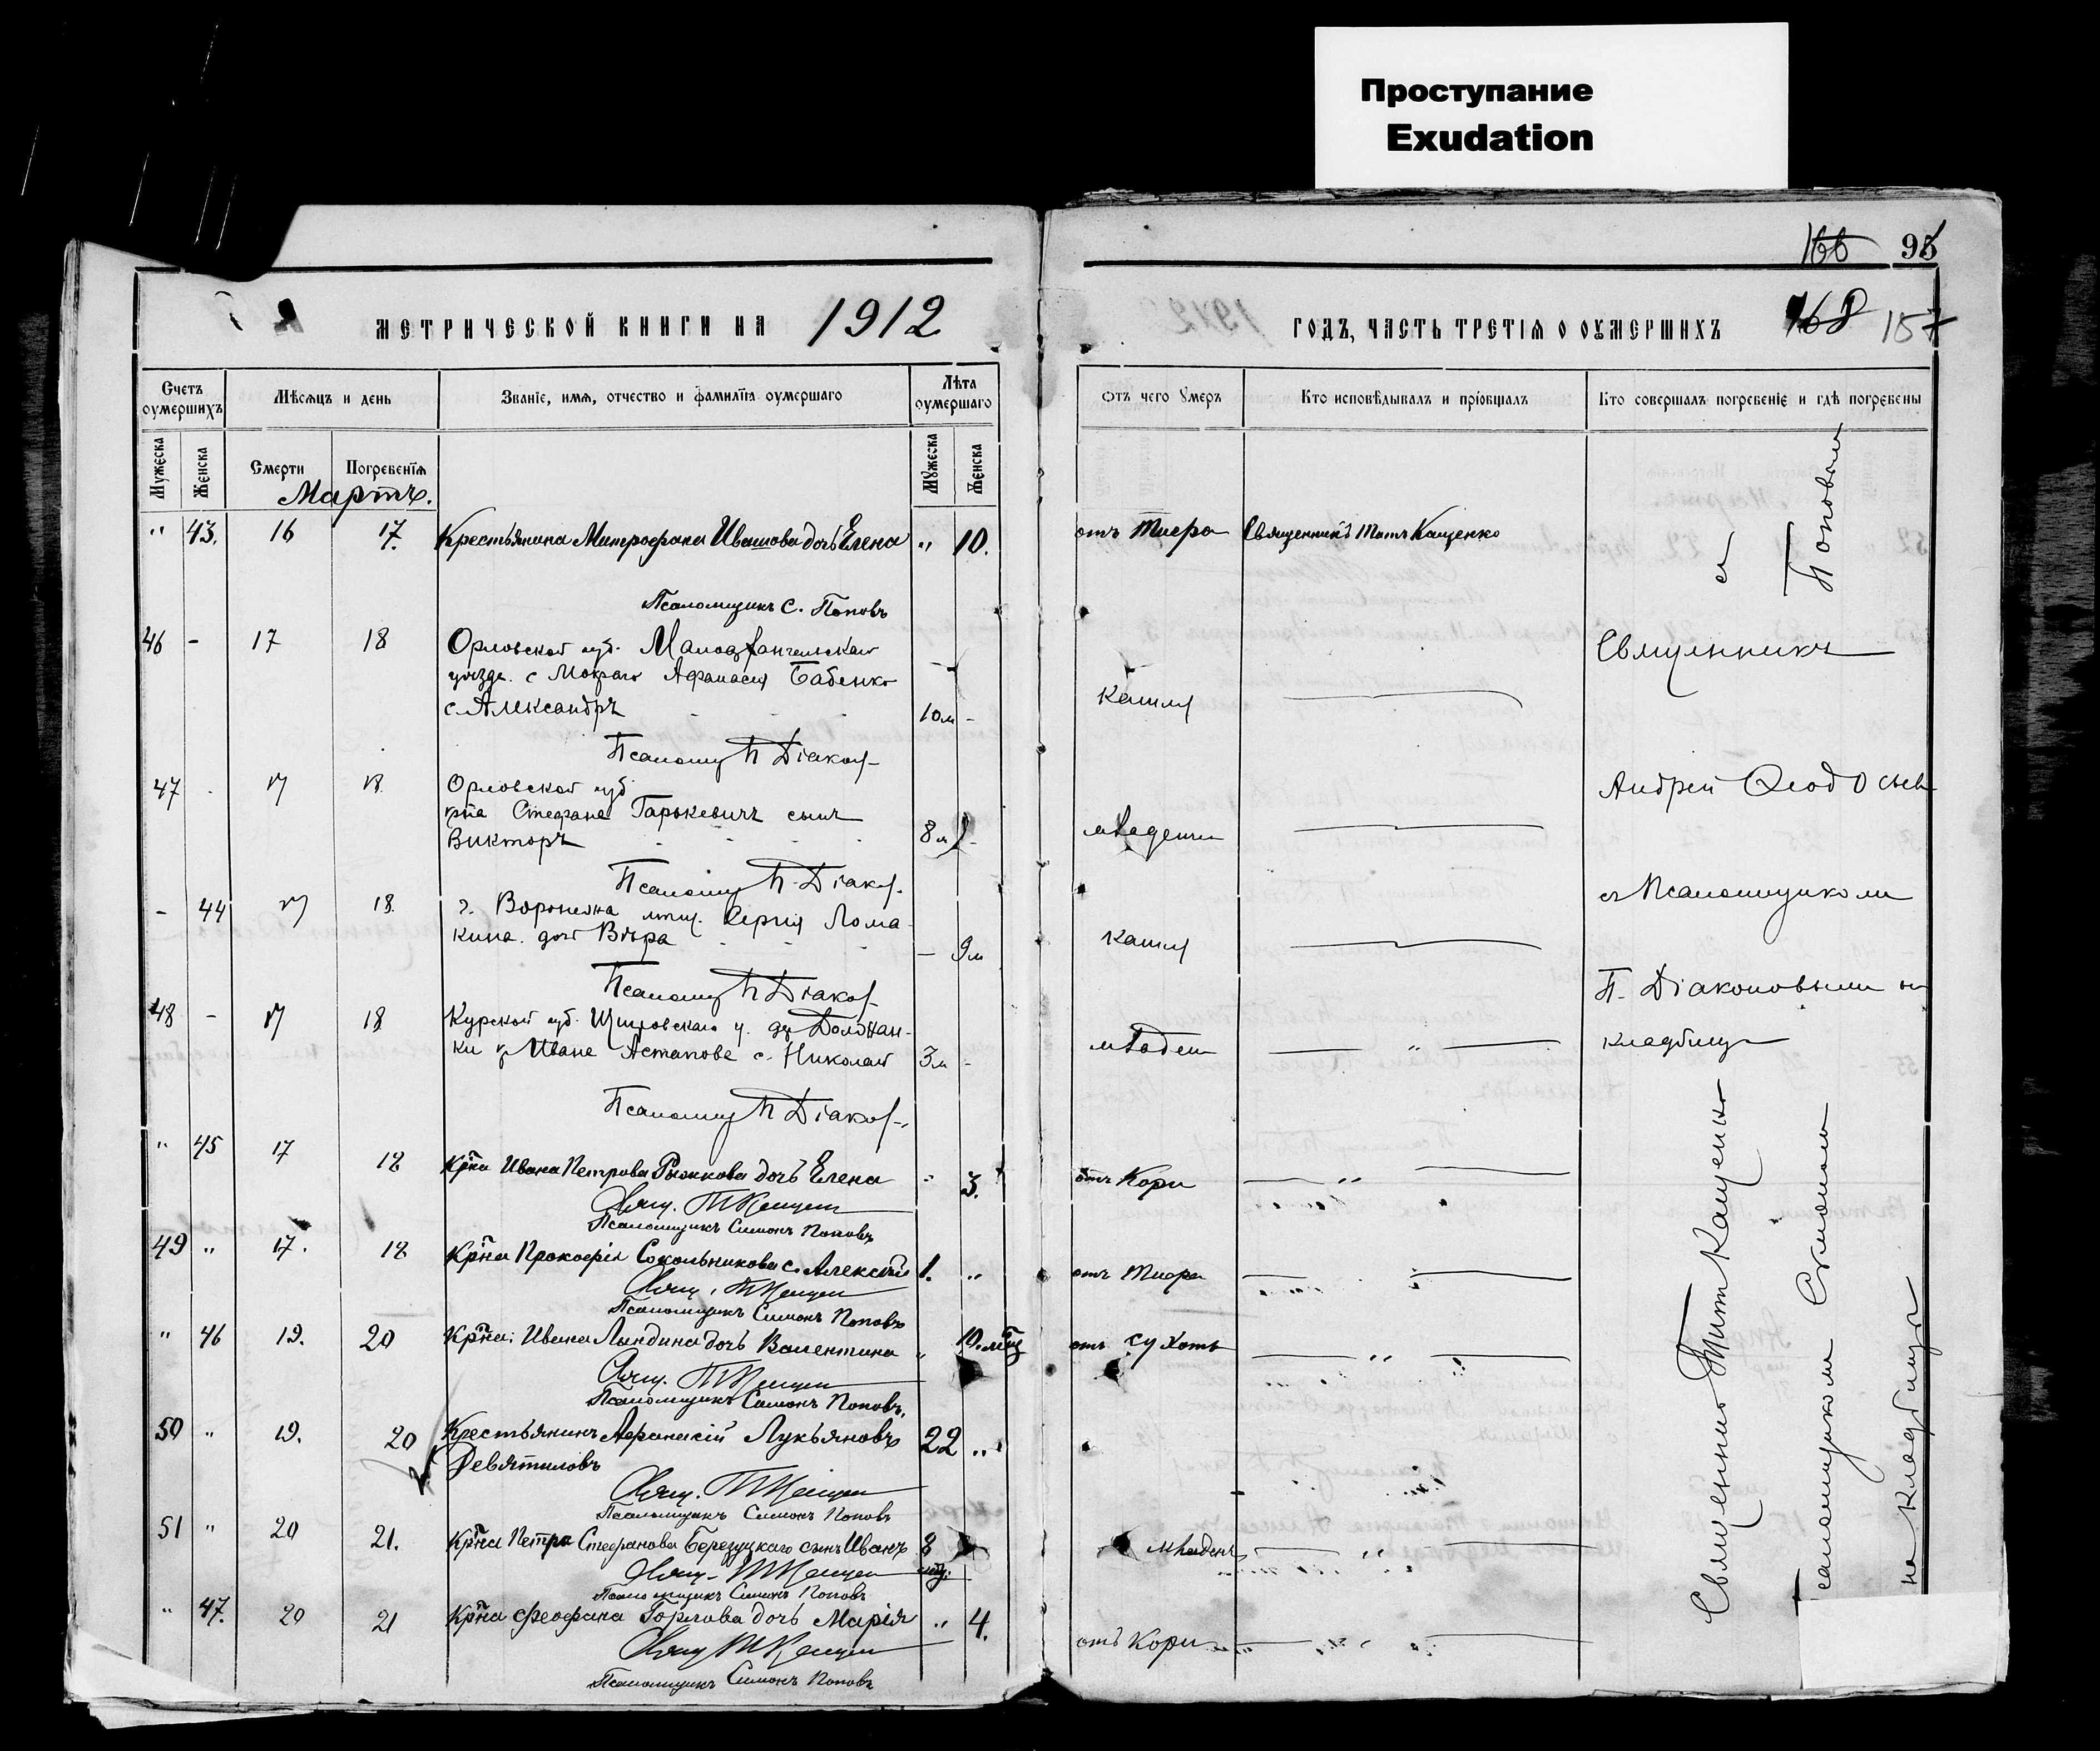 Проступание
Exudation
166 95
168 157
МЕТРИЧЕСКОЙ КНИГИ НА 1912
ГОДЪ, ЧАСТЬ ТРЕТІЯ О ОУМЕРШИХЪ
Счетъ оумершихъ
Мѣсяцъ и день
Званіе, имя, отчество и фамилія оумершаго
Лѣта оумершаго
Отъ чего Умеръ
Кто исповѣдывалъ и пріобщалъ
Кто совершалъ погребеніе и гдѣ погребены
Мужеска
Женска
Смерти
Погребенія
Мужеска
Женска
Мартъ.
" 43. 16 17. Крестьянина Митрофана Ивашова дочь Елена " 10. отъ Тифа Священникъ Титъ Кащенко
Псаломщикъ С. Поповъ
46 - 17 18 Орловской губ. Малоархангельскаго
уѣзда. с Мокраго Афанасия Бабенко
с. Александръ 10м - Кашля
Псаломщ П Діако
47 . 17 18 Орловской губ
кр̃на Стефана Гарькевичъ сынъ
Викторъ 8м - младенч
Псаломщ П. Діако
- 44 17 18. г. Воронежа мѣщ. Сергия Лома
кина. дочь Вѣра - 9м Кашля
Псаломщ П Діако
48 - 17 18 Курской губ. Щигровскаго у. дер Должан-
ки кр Ивана Астапова с. Николай 3м - младен "
Псаломщ П Діако
" 45 17 18 Кр̃на Ивана Петрова Рыжкова дочь Елена " 3. отъ Кори "
Свящ. Т Кащен
Псаломщикъ Симонъ Поповъ
49 " 17. 18 Кр̃на Прокофія Сокольникова с. Алексѣй 1. " отъ Тифа
Свящ. Т Кащен
Псаломщикъ Симонъ Поповъ
" 46 19. 20 Кр̃на: Ивана Лындина дочь Валентина " 10. мѣц отъ сухоты "
Свящ. Т Кащен
Псаломщикъ Симонъ Поповъ.
50 " 19. 20 Крестьянинъ Афанасій Лукьяновъ 22 "
Девятиловъ
Свящ. Т Кащен
Псаломщикъ Симонъ Поповъ
51 " 20 21. Кр̃на Петра Стефанова Березуцкаго сынъ Иванъ 8
мѣц. младенч "
Свящ. Т Кащен
Псаломщикъ Симонъ Поповъ
" 47. 20 21 Кр̃на Феофана Горлова дочь Марія " 4. отъ Кори
Свящ Т Кащен
Псаломщикъ Симонъ Поповъ
Священникъ
Андрей Ѳеодосьев
съ Псаломщикомъ
П. Діаконовымъ на
кладбищѣ
Священникъ Титъ Кащенко съ
Псаломщикомъ Симономъ Поповымъ
на кладбищѣ